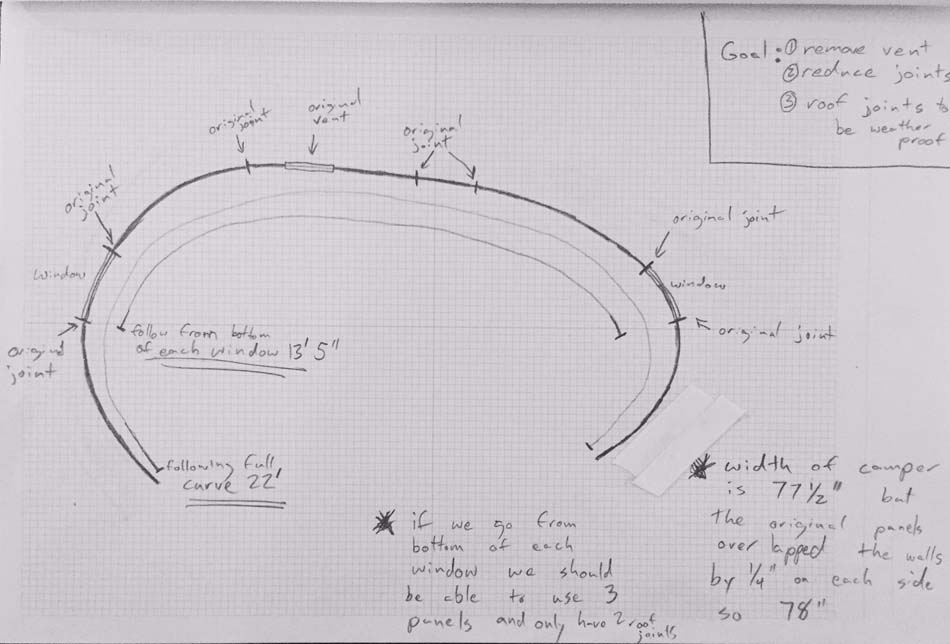 Goal: ① remove vent
② reduce joints
③ roof joints to
be weather
proof
original
joint
original
vent
original
joint
original
joint
window
original
joint
original joint
window
original joint
follow from bottom
of each window 13' 5"
following full
curve 22'
if we go from
bottom of each
window we should
be able to use 3
panels and only have 2 roof
joints
width of camper
is 77 1/2" but
the original panels
over lapped the walls
by 1/4" on each side
so 78"